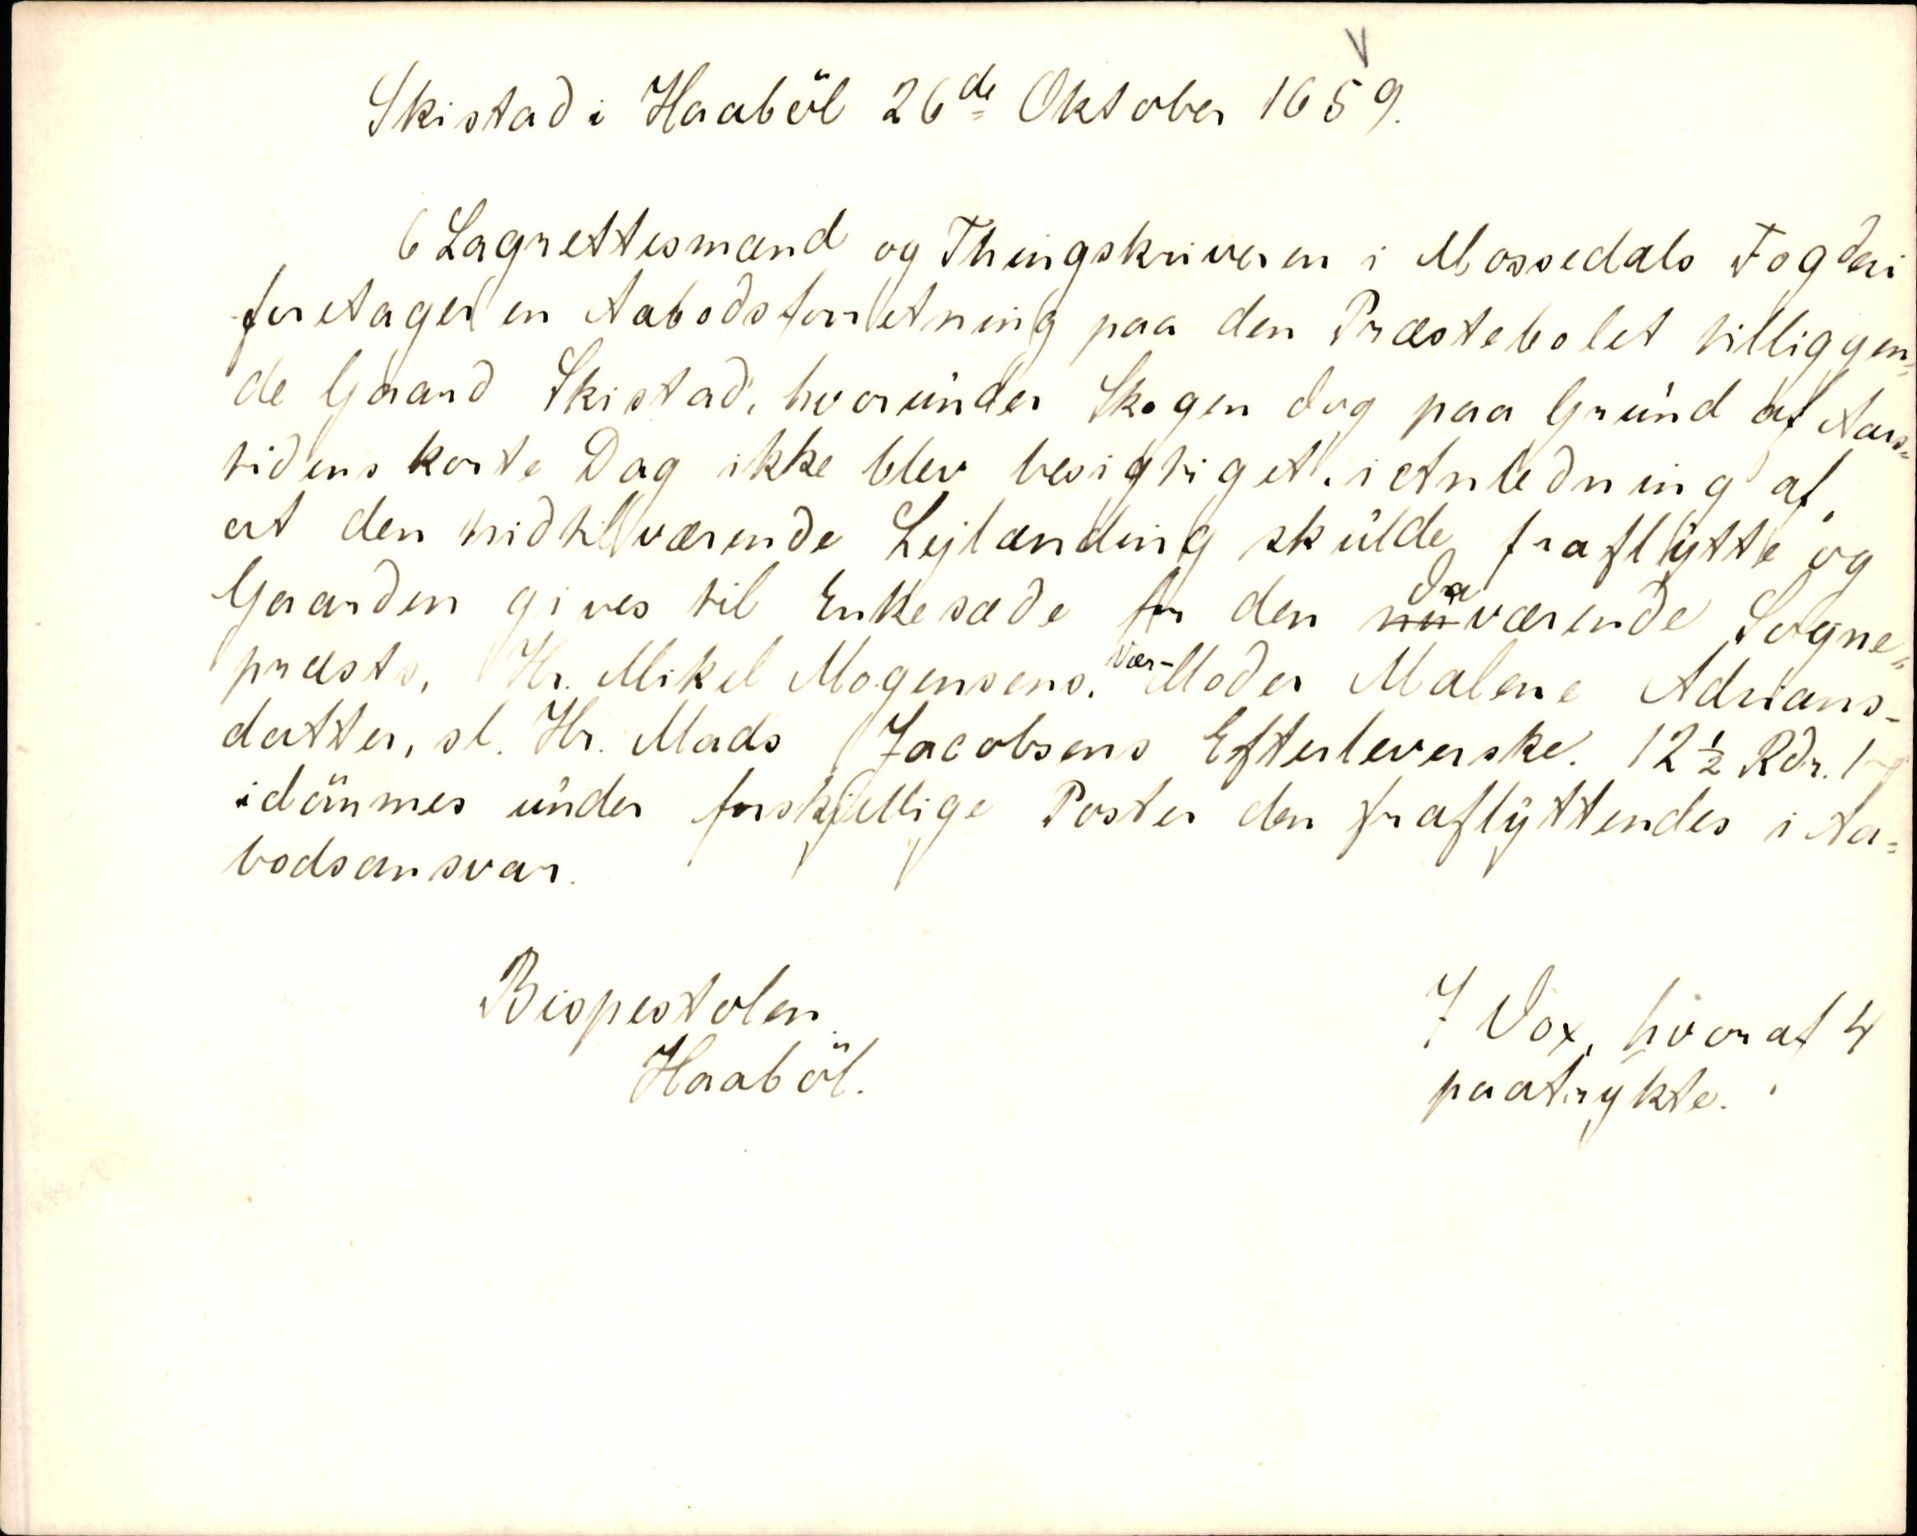 Skistad i Haaböl 26de Oktober 1659.
6 Lagrettesmænd og Thingskriveren i Mossedals Fogderi
foretager en Aabodsforretning paa den Præstebolet tilliggen-
de Gaard Skistad, hvorunder Skogen dog paa Grund af Aars-
tidens korte Dag ikke blev besigtiget, i Anledning af,
at den hidtilværende Lejlænding skulde fraflytte og
Gaarden gives til Enkesæde for den nu da værende Sogne-
præsts, Hr. Mikel Mogensens, Vær-Moder Malene Adrians-
datter, sl. Hr. Mads Jacobsens Efterleverske. 12½ Rdr.
idömmes under forskjellige Poster den fraflyttendes i Aa-
bodsansvar.
Bispestolen.
Haaböl.
7 Vox, hvoraf 4
paatrykte.